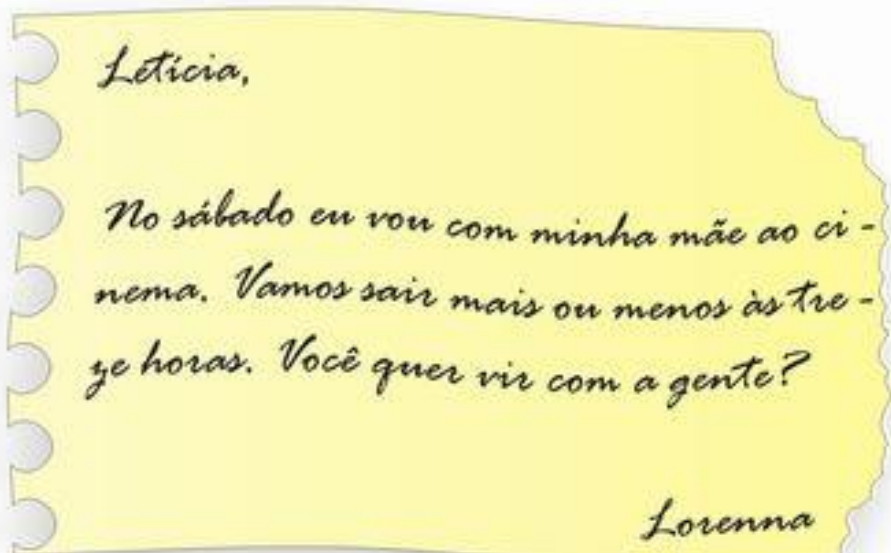 Letícia,
No sábado eu vou com minha mãe ao ci-
nema. Vamos sair mais ou menos às tre-
ze horas. Você quer vir com a gente?
Lorenna